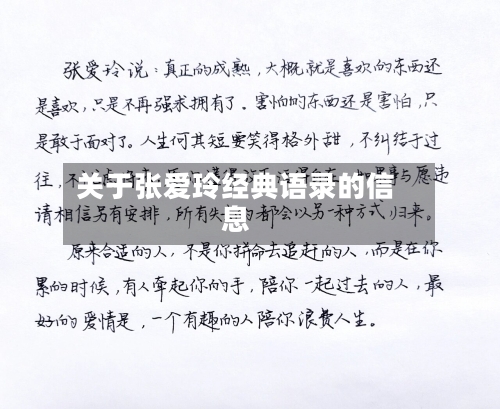 张爱玲说：真正的成熟，大概就是喜欢的东西还
是喜欢，只是不再强求拥有了。害怕的东西还是害怕，只
是敢于面对了。人生何其短要笑得格外甜，不纠结于过
往，不与愿违
关于张爱玲经典语录的信
息
请相信另有安排，所有失的都会以另一种方式归来。
原来合适的人，不是你拼命去追赶的人，而是在你
累的时候，有人牵起你的手，陪你一起过去的人，最
好的爱情是，一个有趣的人陪你浪费人生。